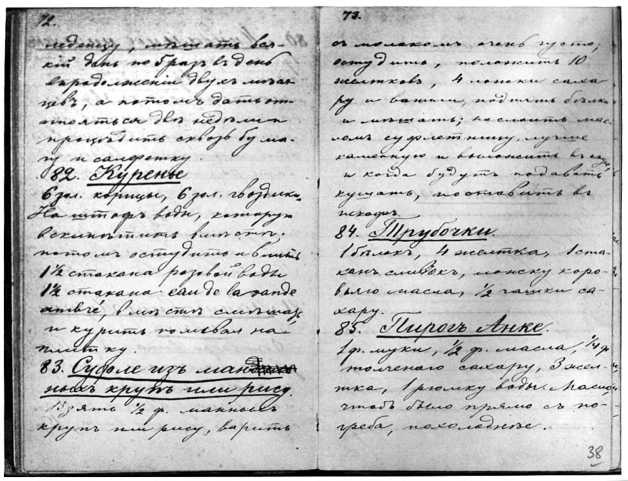 72.
мѣшать вся-
кій день по 6 разъ въ день
въ продолженіи двухъ мѣся-
цевъ, а потомъ дать от-
стояться двѣ недѣли и
процѣдить сквозь бума-
гу и салфетку.
82. Куренье
6 зол. корицы, 6 зол. гвоздики.
На штофъ воды, которую
вскипятить вмѣстѣ,
потомъ остудить и влить
1½ стакана розовой воды
1½ стакана eau de lavande
ambré, вмѣстѣ смѣшать
и курить поливая на
плитку.
83. Суфле изъ манныхъ крупъ или рису.
Взять ½ ф. манныхъ
крупъ или рису, варить
73.
съ молокомъ очень густо,
остудить, положить 10
желтковъ, 4 ложки саха-
ру и ванили, подбить бѣлки
и мѣшать; намазать мас-
ломъ суфлетницу, лучше
каменную и выложить въ нее,
и когда будутъ подавать
кушать, поставить въ
шкафъ.
84. Трубочки.
1 бѣлокъ, 4 желтка, 1 ста-
канъ сливокъ, ложку коро-
вьяго масла, ½ чашки са-
хару.
85. Пирогъ Анке.
1 ф. муки, ½ ф. масла, ¼ ф.
толченаго сахару, 3 жел-
тка, 1 рюмку воды. Масло,
чтобъ было прямо съ по-
греба, похолоднѣе.
38